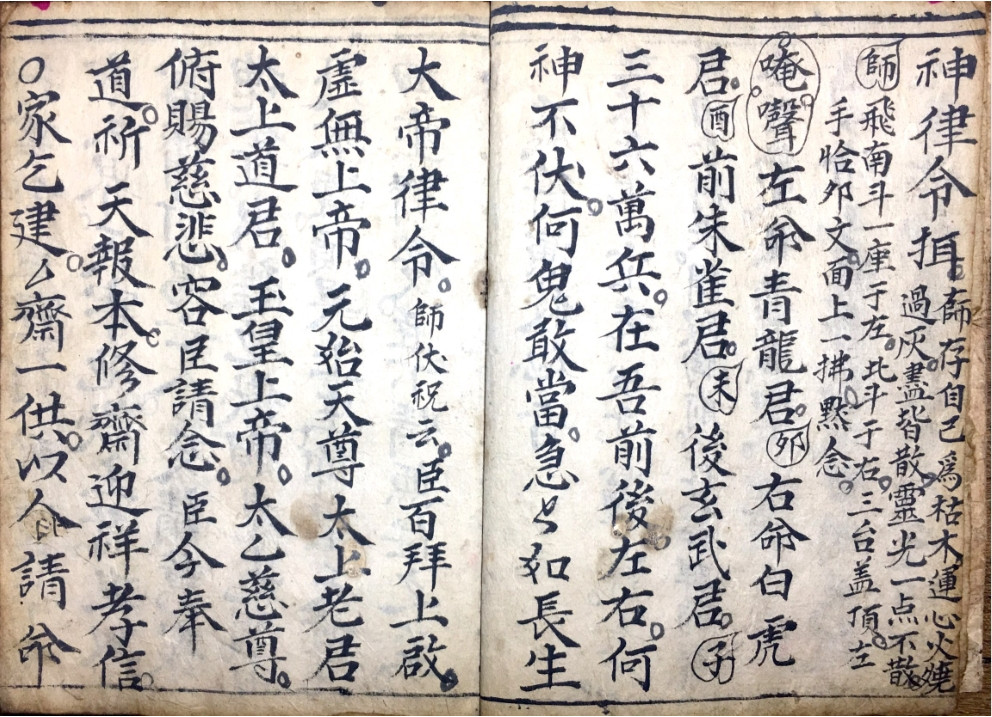 神律令拒。師存自己為枯木運心火燒
過灰。盡皆散靈光一点不散。
師飛南斗一座于左。北斗于右。三台盖頂。左
手恰夘文。面上一拂。黙念。
唵𡅖左命青龍君。夘右命白虎
君。酉前朱雀君。未後玄武君。子
三十六萬兵。在吾前後左右。何
神不伏。何鬼敢當。急々如長生
大帝律令。師伏祝云。臣百拜上啟。
虛無上帝。元始天尊太上老君
太上道君。玉皇上帝。太乙慈尊。
俯賜慈悲。容臣請念。臣今奉
道。祈天報本。修齋迎祥孝信。
○家乞建。厶齋一供。以今請命